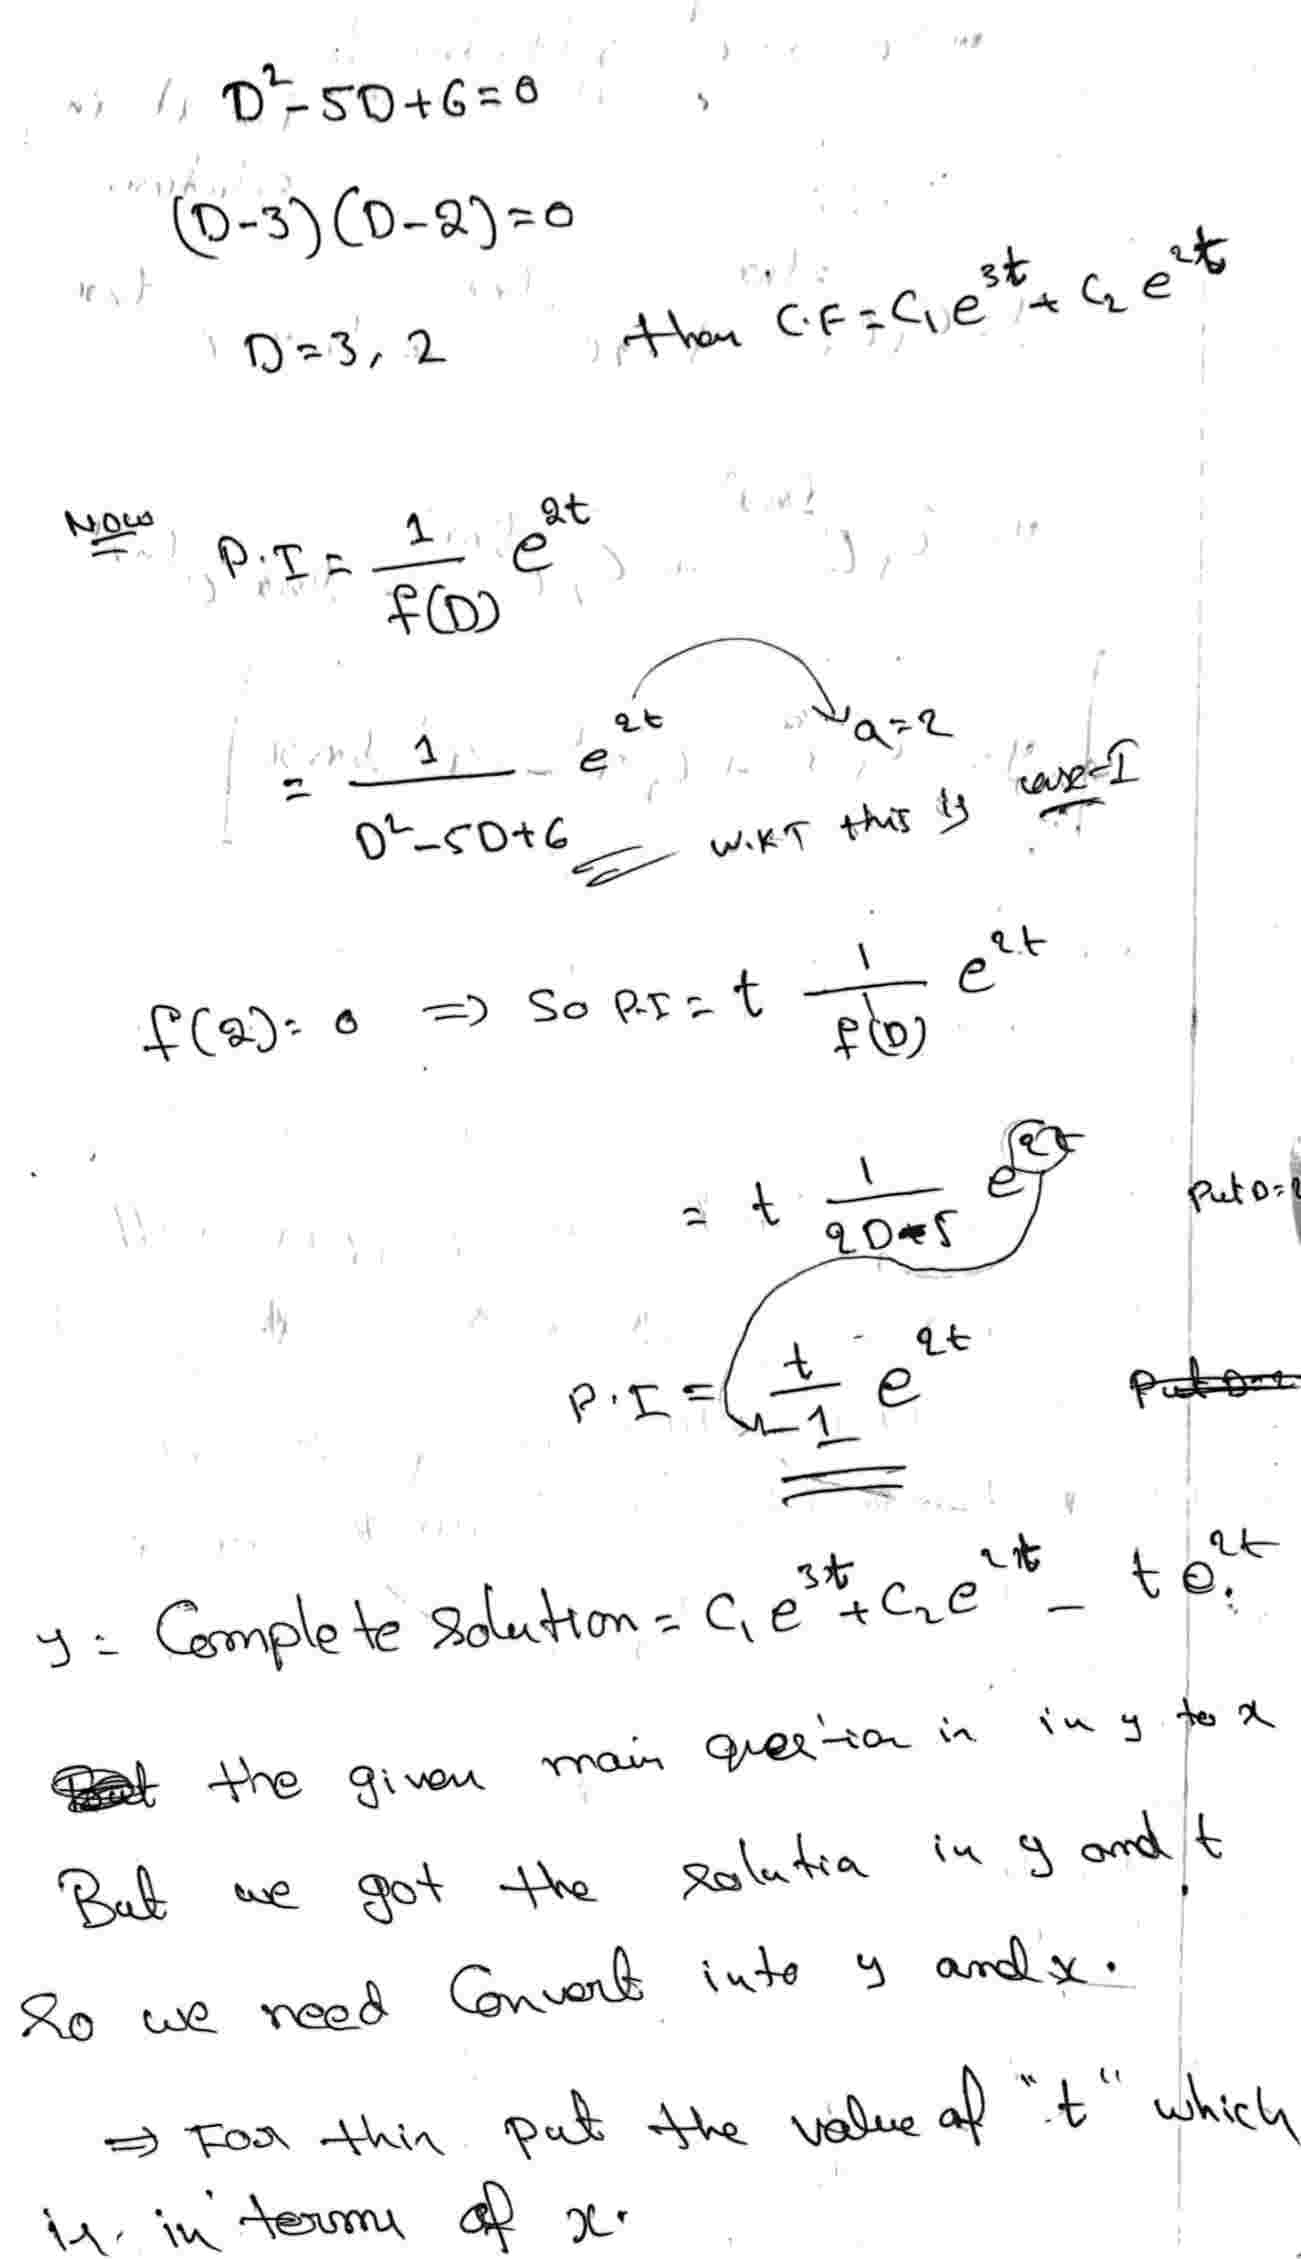 D²-5D+6=0
(D-3)(D-2)=0
D=3, 2 then C.F=C₁e^3t+C₂e^2t
Now P.I = 1/f(D) e^2t
= 1/D²-5D+6 e^2t a=2
W.K.T this is case-I
f(2)=0 ⇒ So P.I = t 1/f'(D) e^2t
= t 1/2D-5 e^2t Put D=2
P.I = t/-1 e^2t
y = Complete Solution = C₁e^3t+C₂e^2t - t e^2t.
the given main question is in y to x
But we got the solutia in y and t
So we need Convert into y and x.
⇒ For this put the value of "t" which
is in terms of x.